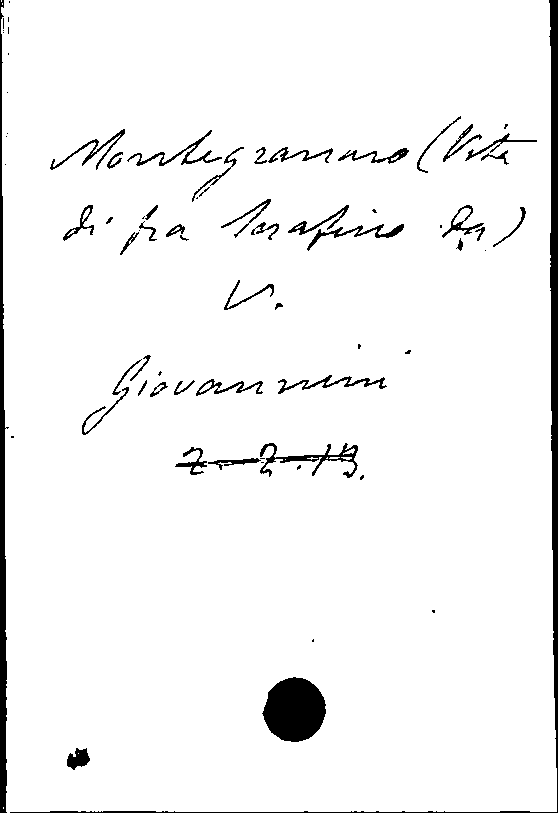 Montegranaro (Vita
di fra Serafino da)
V.
Giovannini
2. 2. 13.